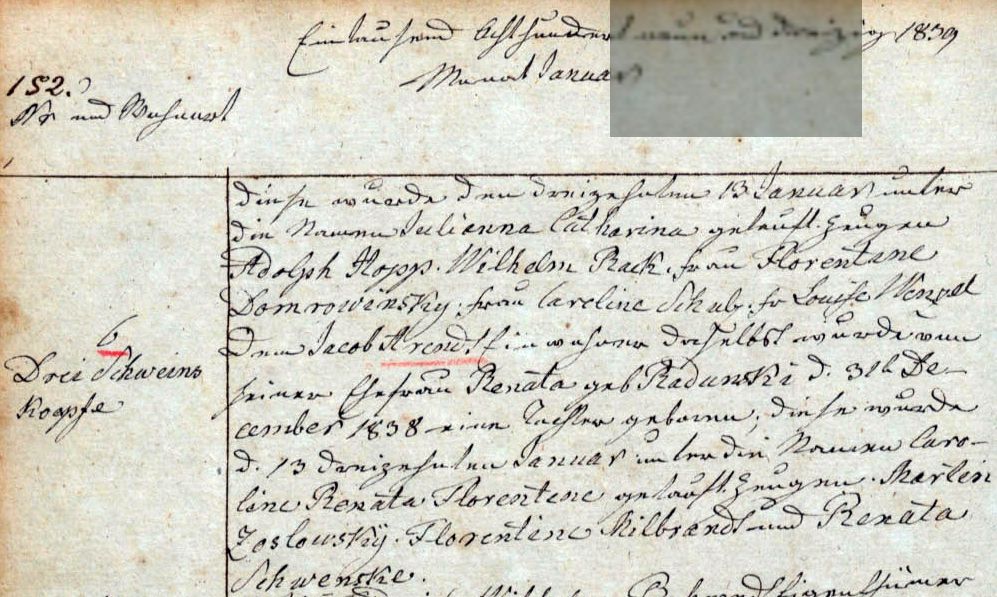 Eintausend Achthundert neun und dreizig 1839
Monat Januar
152.
Nr und Wohnort
diese wurde den dreizehnten 13 Januar unter
die Namen Julianna Catharina getauft. Zeugen
Adolph Hopp. Wilhelm Rack. frau Florentine
Domrowinsky. frau Careline Schulz. fr Louise Wenzel
6
Drei Schweins
Koepfe
Dem Jacob Arendt Einwohner daselbst wurde von
seiner Ehefrau Renata geb Radunski d. 31t De-
cember 1838 eine Tochter geboren, diese wurde
d. 13 dreizehnten Januar unter die Namen Caro-
line Renata Florentene getauft. Zeugen. Martin
Zoslowskÿ. Florentine Milbrandt und Renata
Schwenske.